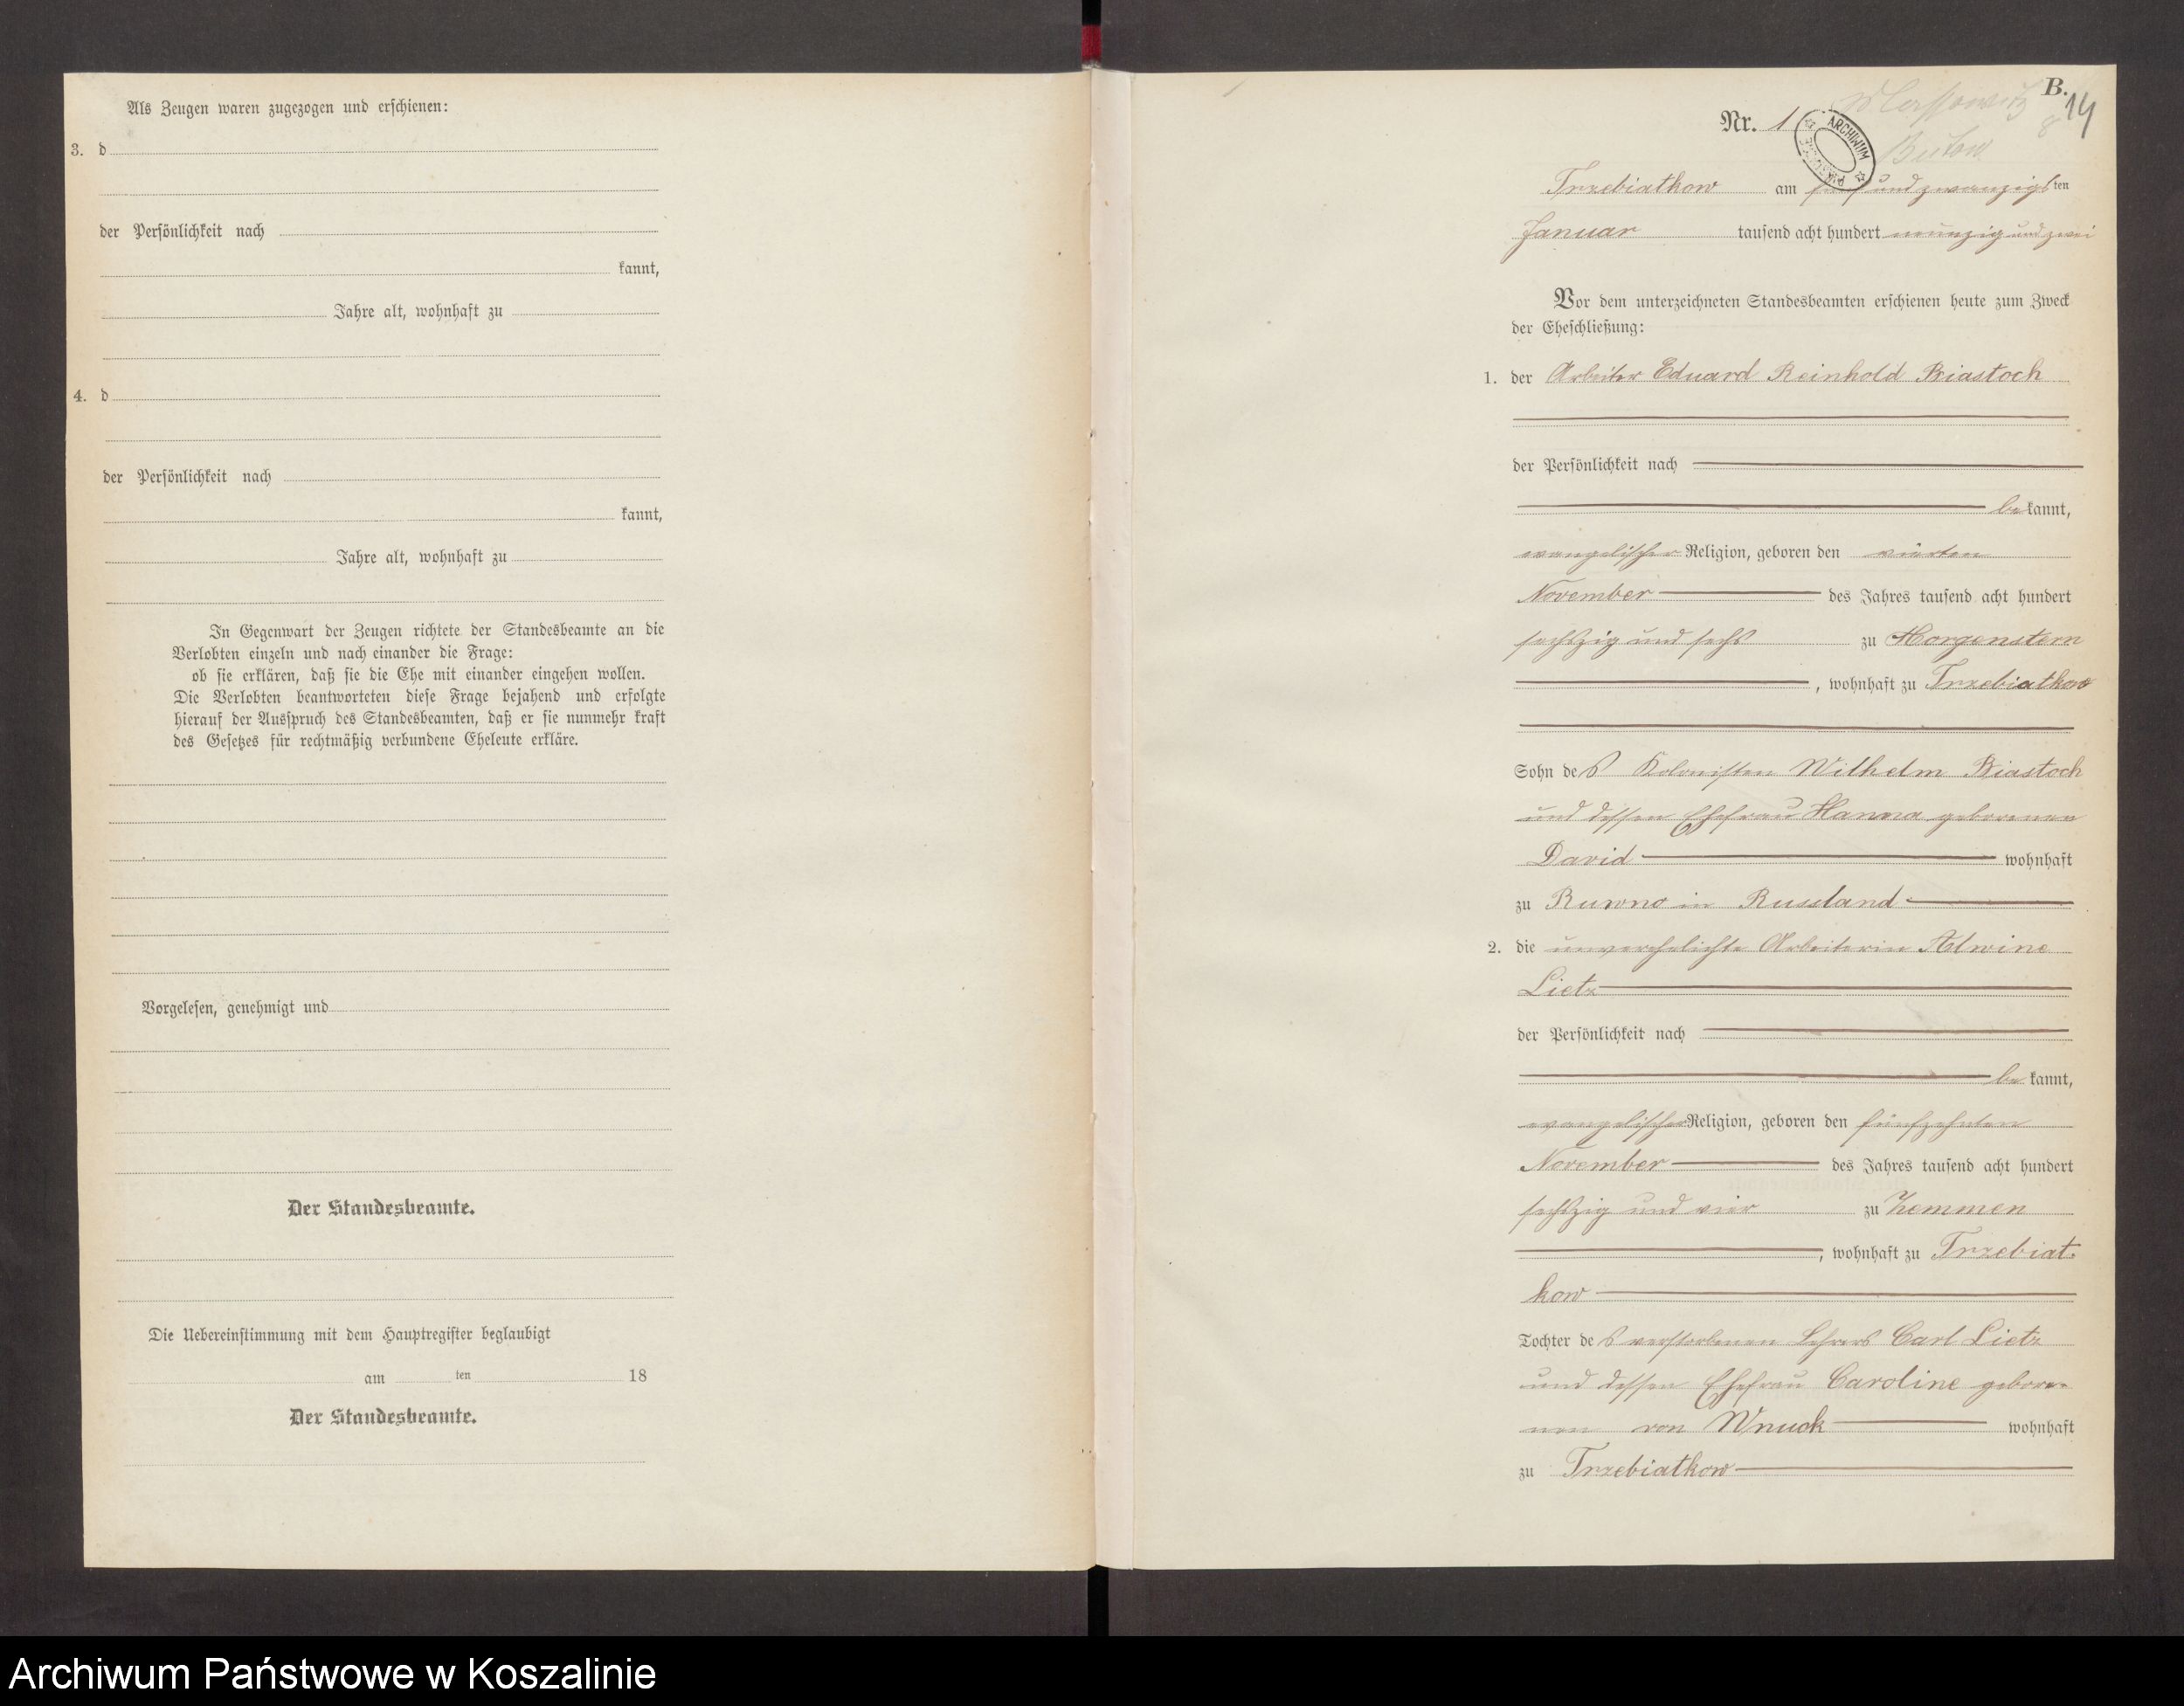 Als Zeugen waren zugezogen und erschienen:
3. d
der Persönlichkeit nach
kannt,
Jahre alt, wohnhaft zu
4. d
der Persönlichkeit nach
kannt,
Jahre alt, wohnhaft zu
In Gegenwart der Zeugen richtete der Standesbeamte an die
Verlobten einzeln und nach einander die Frage:
ob sie erklären, daß sie die Ehe mit einander eingehen wollen.
Die Verlobten beantworteten diese Frage bejahend und erfolgte
hierauf der Ausspruch des Standesbeamten, daß er sie nunmehr kraft
des Gesetzes für rechtmäßig verbundene Eheleute erkläre.
Vorgelesen, genehmigt und
Der Standesbeamte.
Die Uebereinstimmung mit dem Hauptregister beglaubigt
am ten 18
Der Standesbeamte.
B.
14
8
Nr. 1
ARCHIWUM
Bütow
Trzebiatkow am fünf und zwanzigsten
Januar tausend acht hundert neunzig und zwei
Vor dem unterzeichneten Standesbeamten erschienen heute zum Zweck
der Eheschließung:
1. der Arbeiter Eduard Reinhold Biastoch
der Persönlichkeit nach
bekannt,
evangelischer Religion, geboren den vierten
November des Jahres tausend acht hundert
sechszig und sechs zu Morgenstern
, wohnhaft zu Trzebiatkow
Sohn des Kolonisten Wilhelm Biastoch
und dessen Ehefrau Hanna geborenen
David wohnhaft
zu Ruwno in Russland
2. die unverehelichte Arbeiterin Alwine
Lietz
der Persönlichkeit nach
bekannt,
evangelischer Religion, geboren den fünfzehnten
November des Jahres tausend acht hundert
sechszig und vier zu Zemmen
, wohnhaft zu Trzebiat-
kow
Tochter des verstorbenen Lehrers Carl Lietz
und dessen Ehefrau Caroline gebore-
nen von Wnuck wohnhaft
zu Trzebiatkow
Archiwum Państwowe w Koszalinie